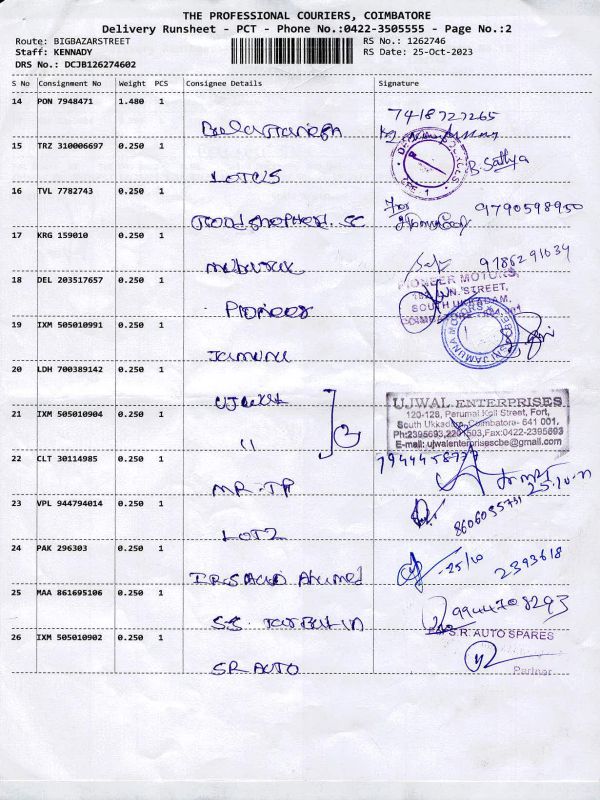 THE PROFESSIONAL COURIERS, COIMBATORE
Delivery Runsheet - PCT - Phone No.:0422-3505555 - Page No.:2
Route: BIGBAZARSTREET
Staff: KENNADY
DRS No.: DCJB126274602
RS No.: 1262746
RS Date: 25-Oct-2023
S No Consignment No Weight PCS Consignee Details Signature
14 PON 7948471 1.480 1
7418727265
15 TRZ 310006697 0.250 1
LOTUS
B. Sathya
16 TVL 7782743 0.250 1
Good shepherd. SC
For 9790598950
17 KRG 159010 0.250 1
9786291034
18 DEL 203517657 0.250 1
Pioneer
PIONEER MOTORS,
SOUTH UKKADAM,
19 IXM 505010991 0.250 1
Jamuna
JAMUNA MOTORS
20 LDH 700389142 0.250 1
Ujwal
21 IXM 505010904 0.250 1
"
UJWAL ENTERPRISES
120-128, Perumal Koil Street, Fort,
South Ukkadam, Coimbatore- 641 001.
E-mail: ujwalenterprisescbe@gmail.com
22 CLT 30114985 0.250 1
MR-TP
23 VPL 944794014 0.250 1
LOTZ
24 PAK 296303 0.250 1
Irshad Ahumed
25/10 2393618
25 MAA 861695106 0.250 1
S.S.
9944708293
26 IXM 505010902 0.250 1
SR AUTO
S.R. AUTO SPARES
Partner